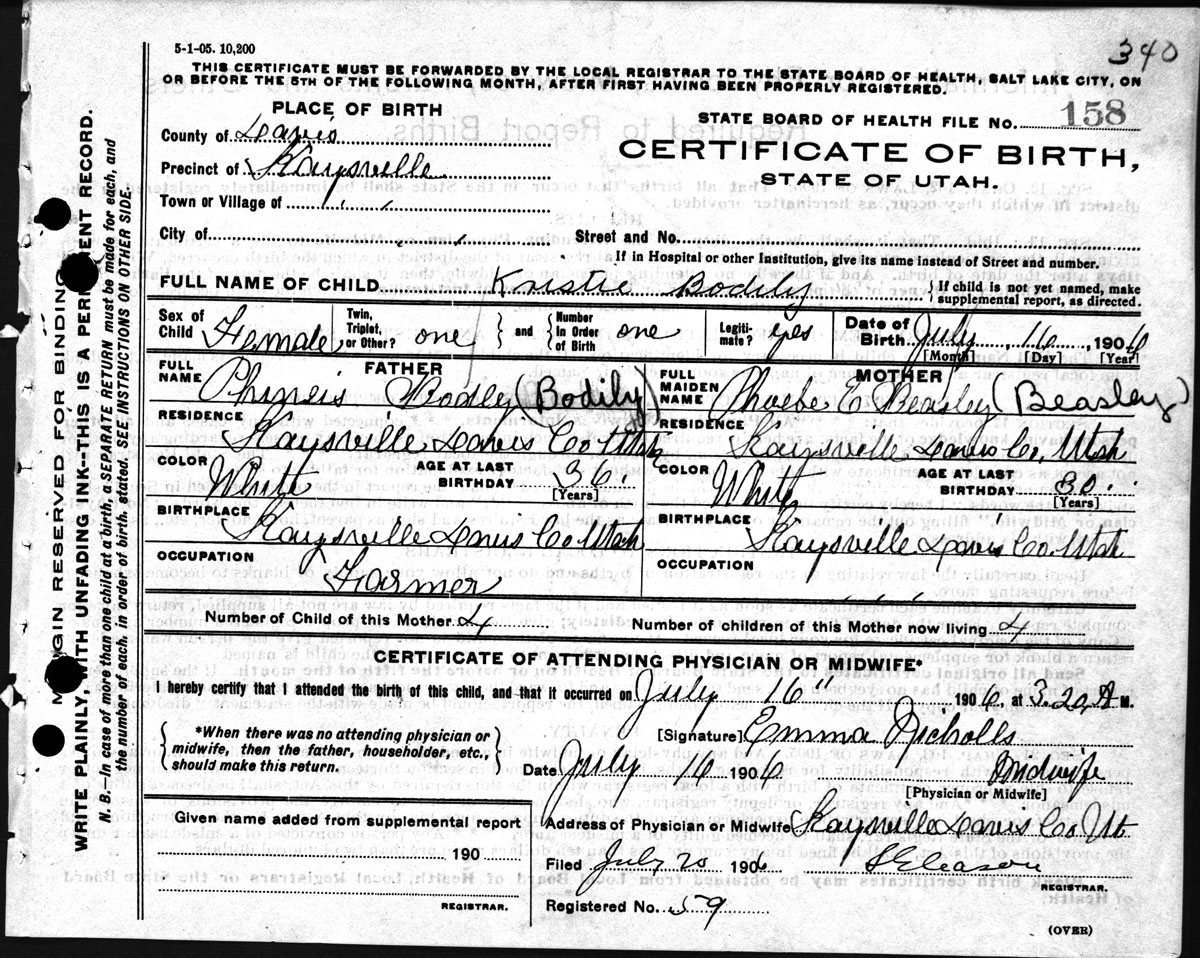 340
5-1-05. 10,200
THIS CERTIFICATE MUST BE FORWARDED BY THE LOCAL REGISTRAR TO THE STATE BOARD OF HEALTH, SALT LAKE CITY, ON
OR BEFORE THE 5TH OF THE FOLLOWING MONTH, AFTER FIRST HAVING BEEN PROPERLY REGISTERED.
PLACE OF BIRTH
County of Davis
Precinct of Kaysville
Town or Village of
City of
STATE BOARD OF HEALTH FILE No. 158
CERTIFICATE OF BIRTH,
STATE OF UTAH.
Street and No.
If in Hospital or other Institution, give its name instead of Street and number.
FULL NAME OF CHILD Kristie Bodily { If child is not yet named, make
supplemental report, as directed.
Sex of Child Female
Twin, Triplet, or Other? one } and { Number In Order of Birth one
Legiti-mate? yes
Date of Birth July 16, 1906
[Month] [Day] [Year]
FATHER
FULL NAME Phineis Bodley (Bodily)
RESIDENCE Kaysville Davis Co Utah
COLOR White
AGE AT LAST BIRTHDAY 36
[Years]
BIRTHPLACE Kaysville Davis Co Utah
OCCUPATION Farmer
MOTHER
FULL MAIDEN NAME Phoebe E Beasley (Beasley)
RESIDENCE Kaysville Davis Co, Utah
COLOR White
AGE AT LAST BIRTHDAY 30
[Years]
BIRTHPLACE Kaysville Davis Co. Utah
OCCUPATION
Number of Child of this Mother 4 Number of children of this Mother now living 4
CERTIFICATE OF ATTENDING PHYSICIAN OR MIDWIFE*
I hereby certify that I attended the birth of this child, and that it occurred on July 16" 1906, at 3.20, A M.
{ *When there was no attending physician or
midwife, then the father, householder, etc.,
should make this return. }
[Signature] Emma Nicholls
Date July 16 1906 Midwife
[Physician or Midwife]
Given name added from supplemental report
190
REGISTRAR.
Address of Physician or Midwife Kaysville Davis Co Ut.
Filed July 20 1906
REGISTRAR.
Registered No. 59
(OVER)
MARGIN RESERVED FOR BINDING
WRITE PLAINLY, WITH UNFADING INK--THIS IS A PERMANENT RECORD.
N. B.--In case of more than one child at a birth, a SEPARATE RETURN must be made for each, and
the number of each, in order of birth, stated. SEE INSTRUCTIONS ON OTHER SIDE.